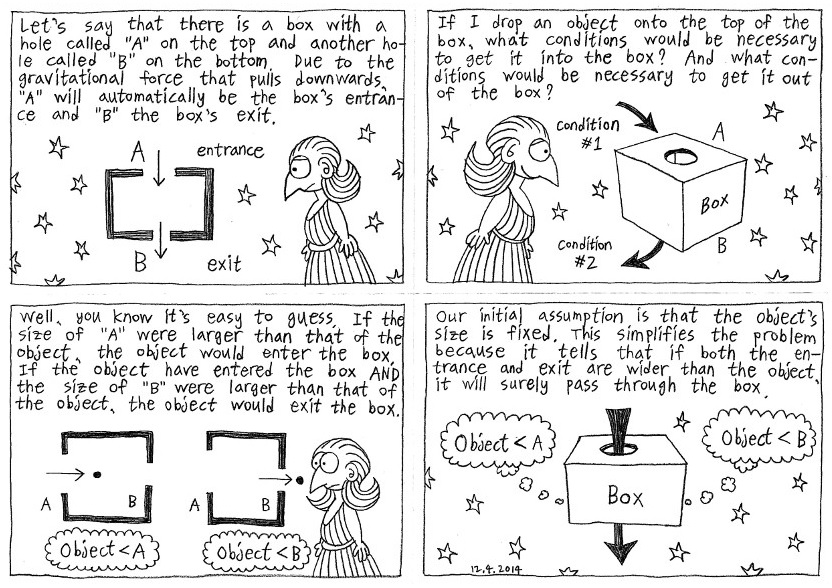 Let's say that there is a box with a
hole called "A" on the top and another ho-
le called "B" on the bottom. Due to the
gravitational force that pulls downwards,
"A" will automatically be the box's entran-
ce and "B" the box's exit.
A entrance
B exit
If I drop an object onto the top of the
box, what conditions would be necessary
to get it into the box? And what con-
ditions would be necessary to get it out
of the box?
Condition
#1
A
Box
B
Condition
#2
Well, you know it's easy to guess. If the
size of "A" were larger than that of the
object, the object would enter the box.
If the object have entered the box AND
the size of "B" were larger than that of
the object, the object would exit the box.
A B
A B
Object < A
Object < B
Our initial assumption is that the object's
size is fixed. This simplifies the problem
because it tells that if both the en-
trance and exit are wider than the object,
it will surely pass through the box.
Object < A
Object < B
Box
12.4.2014